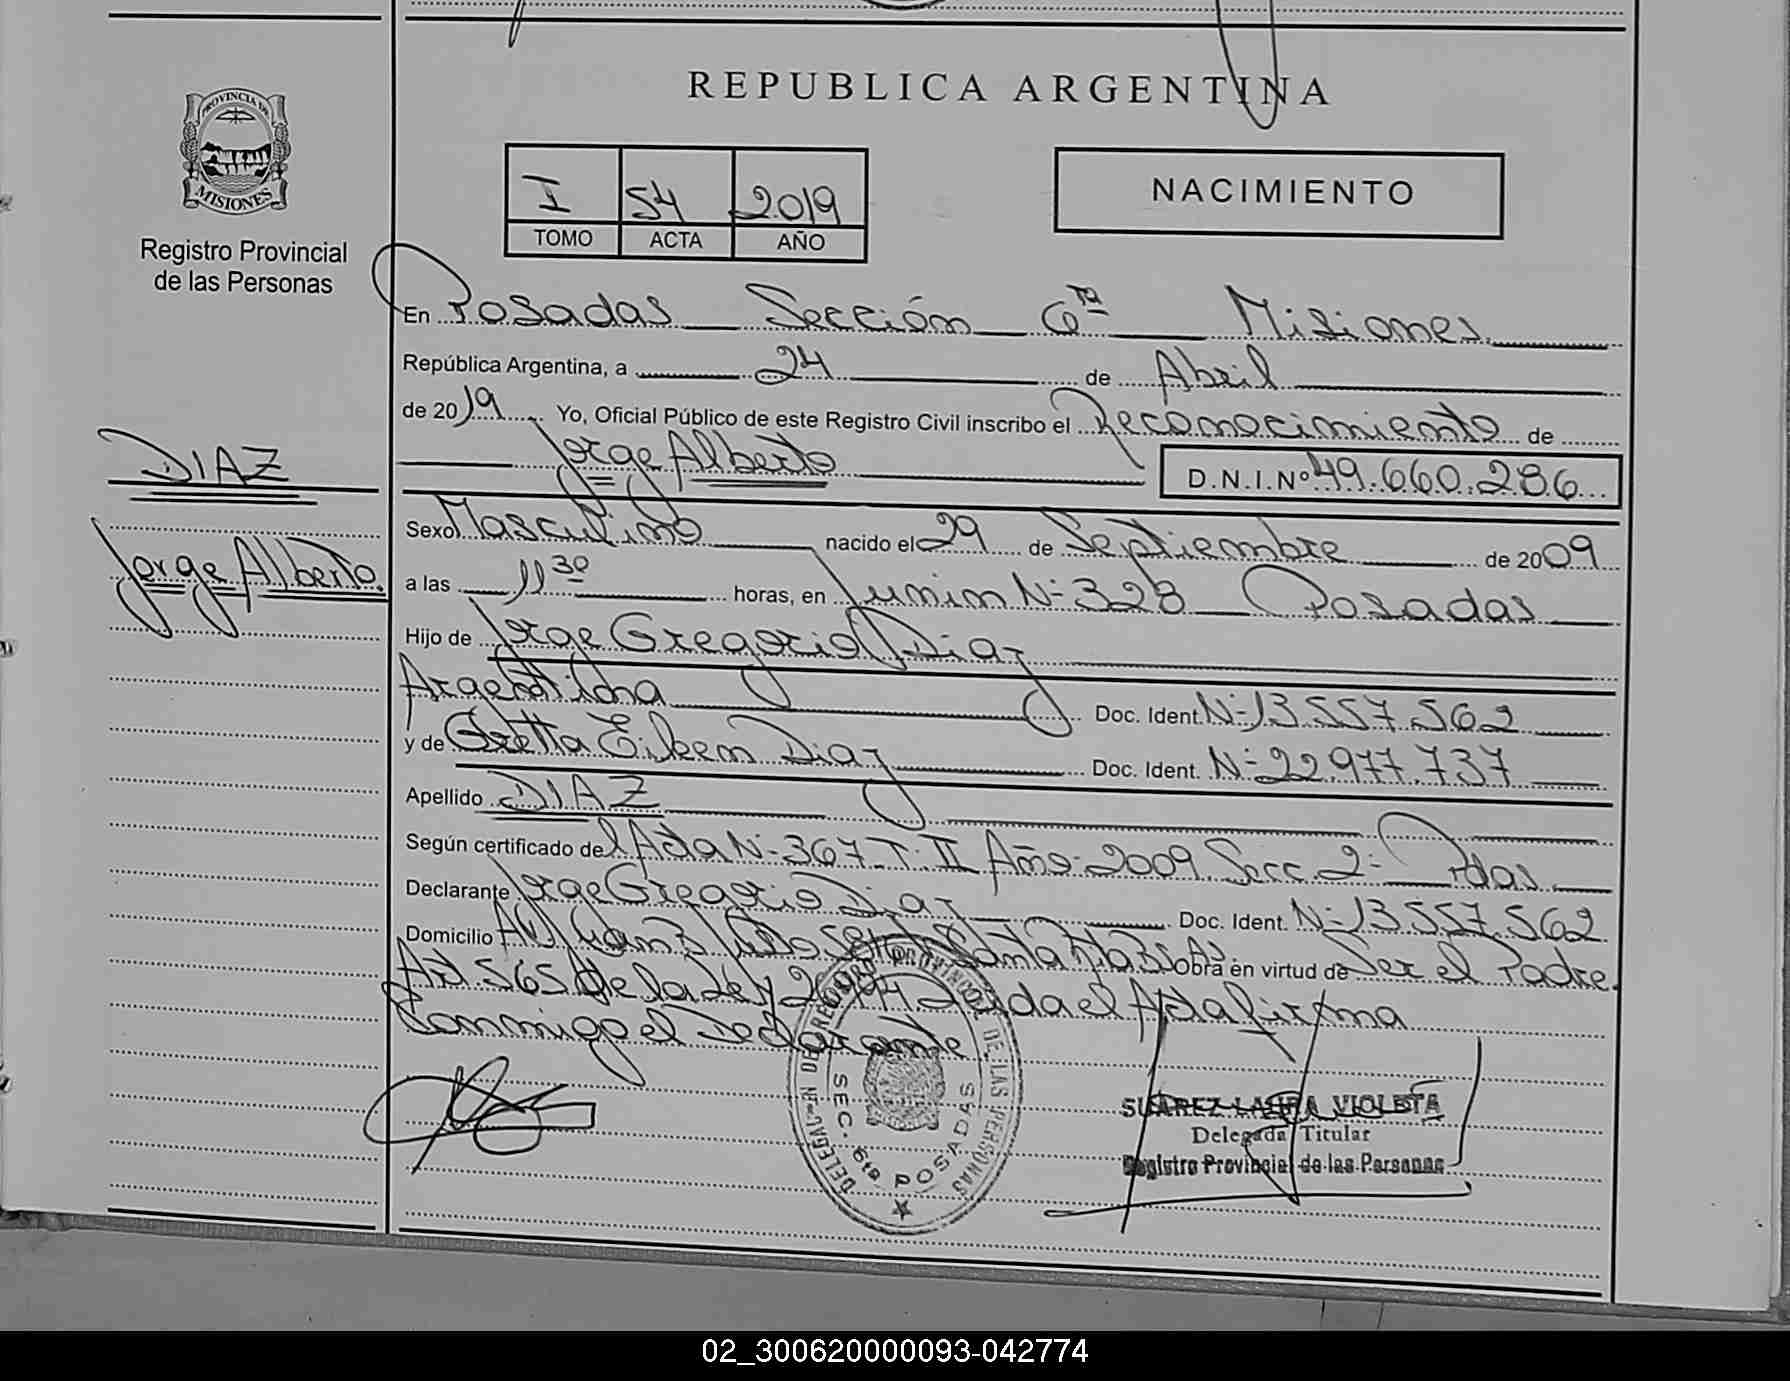 REPUBLICA ARGENTINA
PROVINCIA DE
MISIONES
Registro Provincial
de las Personas
I 54 2019
TOMO ACTA AÑO
NACIMIENTO
En Posadas Sección 6ta Misiones
República Argentina, a 24 de Abril
de 2019 Yo, Oficial Público de este Registro Civil inscribo el Reconocimiento de
Jorge Alberto
D.N.I.Nº 49.660.286
DIAZ
Jorge Alberto
Sexo Masculino nacido el 29 de Septiembre de 2009
a las 11 30 horas, en Junin Nº 328 Posadas
Hijo de Jorge Gregorio Diaz
Argentina Doc. Ident. Nº 13.557.562
y de Gretta Eileen Diaz Doc. Ident. Nº 22.977.737
Apellido DIAZ
Según certificado del Acta Nº 367 T. II Año 2009 Secc. 2ª Pdas
Declarante Jorge Gregorio Diaz Doc. Ident. Nº 13.557.562
Domicilio Av Juan Santa Rita Bs As Obra en virtud de Ser el Padre
Art 565 de la Ley el Acta firma
Conmigo el Declarante
DE LAS PERSONAS
SEC. 6ta POSADAS
SUAREZ LAURA VIOLETA
Delegada Titular
Registro Provincial de las Personas
02_300620000093-042774